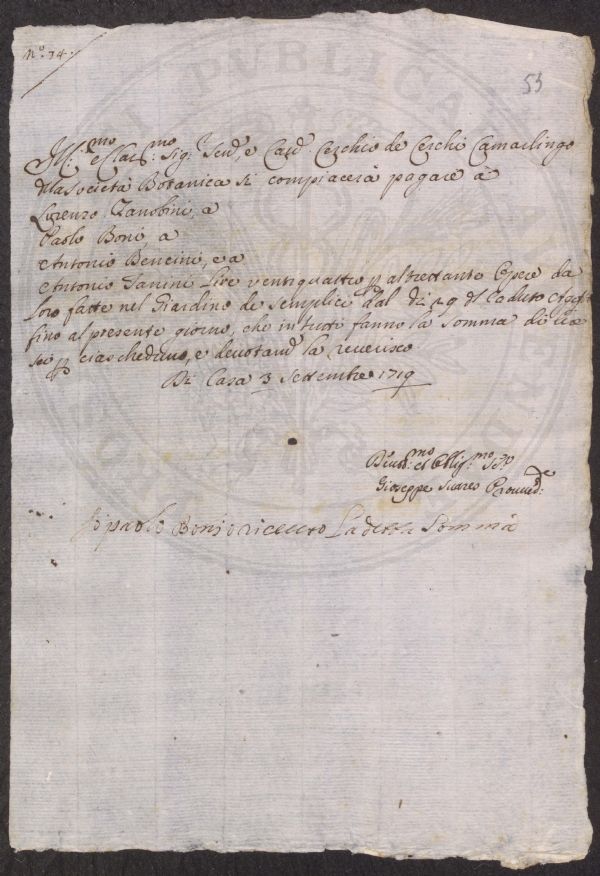 N.º 74.
53
Ill:mo e Clar:mo Sig:r Sen:d e Cav:d Cerchio de Cerchi Camarlingo
della Società Botanica si compiacerà pagare à
Lorenzo Zanobini, a
Paolo Boni, a
Antonio Bencini, e a
Antonio Nanini Lire ventiquattro p altrettante Opere da
loro fatte nel Giardino de Semplici dal dì 29 del Caduto
fino al presente giorno, che in tutti fanno la somma di
sei p ciascheduno, e devotam la reverisco
Di Casa 3 Settembre 1719
Devot:mo et Obblig:mo Se:r
Gioseppe Suares Provved:
Io paolo Boni o riceuto La detta Somma
PUBLICA